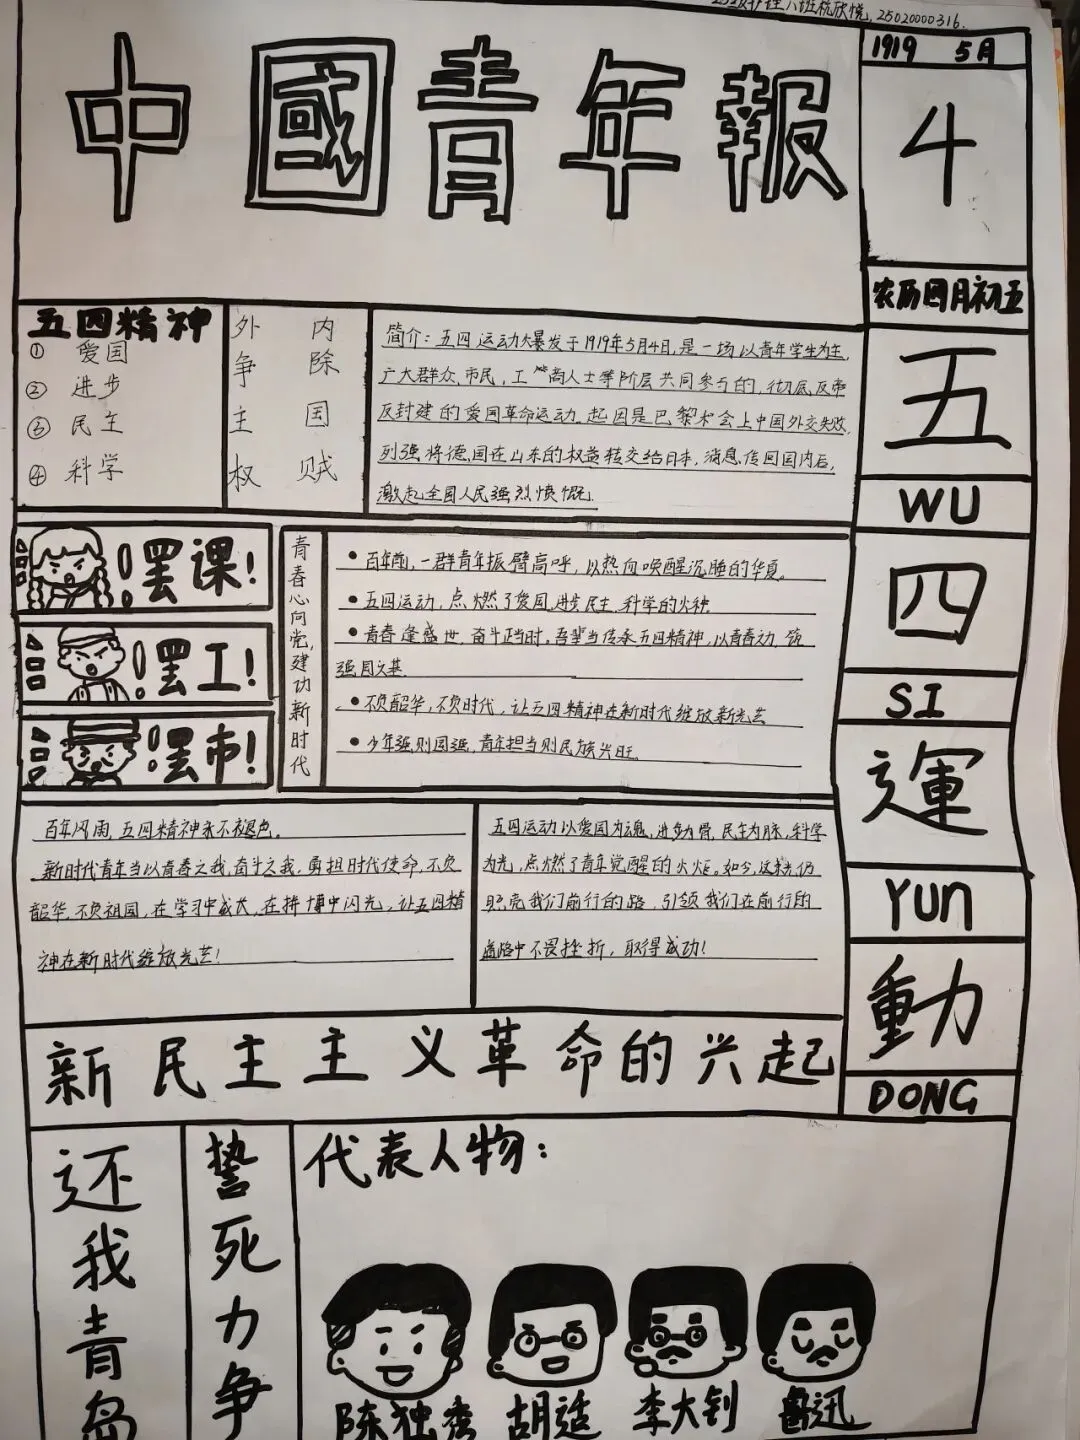 护理八班杭欣悦, 25020000316.
中國青年報
1919 5月
4
农历四月初五
五
WU
四
SI
運
YUn
動
DONG
五四精神
① 爱国
② 进步
③ 民主
④ 科学
外争主权
内除国贼
简介：五四运动大暴发于1919年5月4日,是一场以青年学生为主,
广大群众、市民、工商人士等阶层共同参与的,彻底反帝
反封建的爱国革命运动。起因是巴黎术会上中国外交失败,
列强将德国在山东的权益转交给日本,消息传回国内后,
激起全国人民强烈愤慨。
!罢课!
!罢工!
!罢市!
青春心向党,建功新时代
• 百年前,一群青年振臂高呼,以热血唤醒沉睡的华夏。
• 五四运动,点燃了爱国、进步、民主、科学的火种
• 青春逢盛世,奋斗正当时。吾辈当传承五四精神,以青春动,筑
强国之基
• 不负韶华,不负时代,让五四精神在新时代绽放新光芒
• 少年强则国强,青年担当则民族兴旺
百年风雨,五四精神永不褪色。
新时代青年当以青春之我,奋斗之我,勇担时代使命,不负
韶华,不负祖国,在学习中成长,在拼搏中闪光,让五四精
神在新时代绽放光芒!
五四运动以爱国为魂,进步为骨,民主为脉,科学
为光,点燃了青年觉醒的火炬。如今,这光仍
照亮我们前行的路,引领我们在前行的
道路中不畏挫折,取得成功!
新民主主义革命的兴起
还我青岛
誓死力争
代表人物：
陈独秀 胡适 李大钊 鲁迅